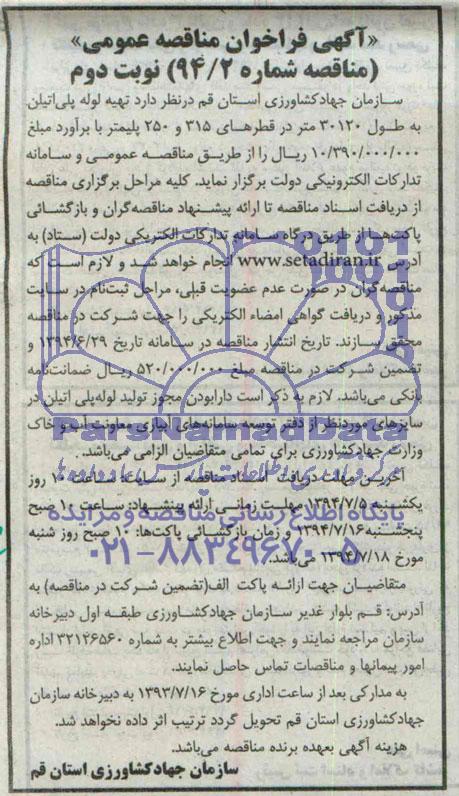 «آگهی فراخوان مناقصه عمومی»
(مناقصه شماره ۹۴/۲) نوبت دوم
سازمان جهادکشاورزی استان قم درنظر دارد تهیه لوله پلی‌اتیلن
به طول ۳۰۱۲۰ متر در قطرهای ۳۱۵ و ۲۵۰ پلیمتر با برآورد مبلغ
۱۰/۳۹۰/۰۰۰/۰۰۰ ریال را از طریق مناقصه عمومی و سامانه
تدارکات الکترونیکی دولت برگزار نماید. کلیه مراحل برگزاری مناقصه
از دریافت اسناد مناقصه تا ارائه پیشنهاد مناقصه‌گران و بازگشائی
پاکت‌ها از طریق درگاه سامانه تدارکات الکتریکی دولت (ستاد) به
آدرس www.setadiran.ir انجام خواهد شد و لازم است که
مناقصه‌گران در صورت عدم عضویت قبلی، مراحل ثبت‌نام در سایت
مذکور و دریافت گواهی امضاء الکتریکی را جهت شرکت در مناقصه
محقق سازند. تاریخ انتشار مناقصه در سامانه تاریخ ۱۳۹۴/۶/۲۹ و
تضمین شرکت در مناقصه مبلغ ۵۲۰/۰۰۰/۰۰۰ ریال ضمانت‌نامه
بانکی می‌باشد. لازم به ذکر است دارابودن مجوز تولید لوله‌پلی اتیلن در
سایزهای موردنظر از دفتر توسعه سامانه‌های آبیاری معاونت آب و خاک
وزارت جهادکشاورزی برای تمامی متقاضیان الزامی می‌باشد.
ParsNamadData
آخرین مهلت دریافت اسناد مناقصه از سایت: ساعت ۱۰ روز
یکشنبه ۱۳۹۴/۷/۵ مهلت زمانی ارائه پیشنهاد: ساعت ۱۰ صبح
پایگاه اطلاع رسانی مناقصه و مزایده
پنجشنبه ۱۳۹۴/۷/۱۶ و زمان بازگشائی پاکت‌ها: ۱۰ صبح روز شنبه
مورخ ۱۳۹۴/۷/۱۸ می‌باشد.
۰۲۱-۸۸۳۴۹۶۷۰-۵
متقاضیان جهت ارائه پاکت الف(تضمین شرکت در مناقصه) به
آدرس: قم بلوار غدیر سازمان جهادکشاورزی طبقه اول دبیرخانه
سازمان مراجعه نمایند و جهت اطلاع بیشتر به شماره ۳۲۱۴۶۵۶۰ اداره
امور پیمانها و مناقصات تماس حاصل نمایند.
به مدارکی بعد از ساعت اداری مورخ ۱۳۹۳/۷/۱۶ به دبیرخانه سازمان
جهادکشاورزی استان قم تحویل گردد ترتیب اثر داده نخواهد شد.
هزینه آگهی بعهده برنده مناقصه می‌باشد.
سازمان جهادکشاورزی استان قم